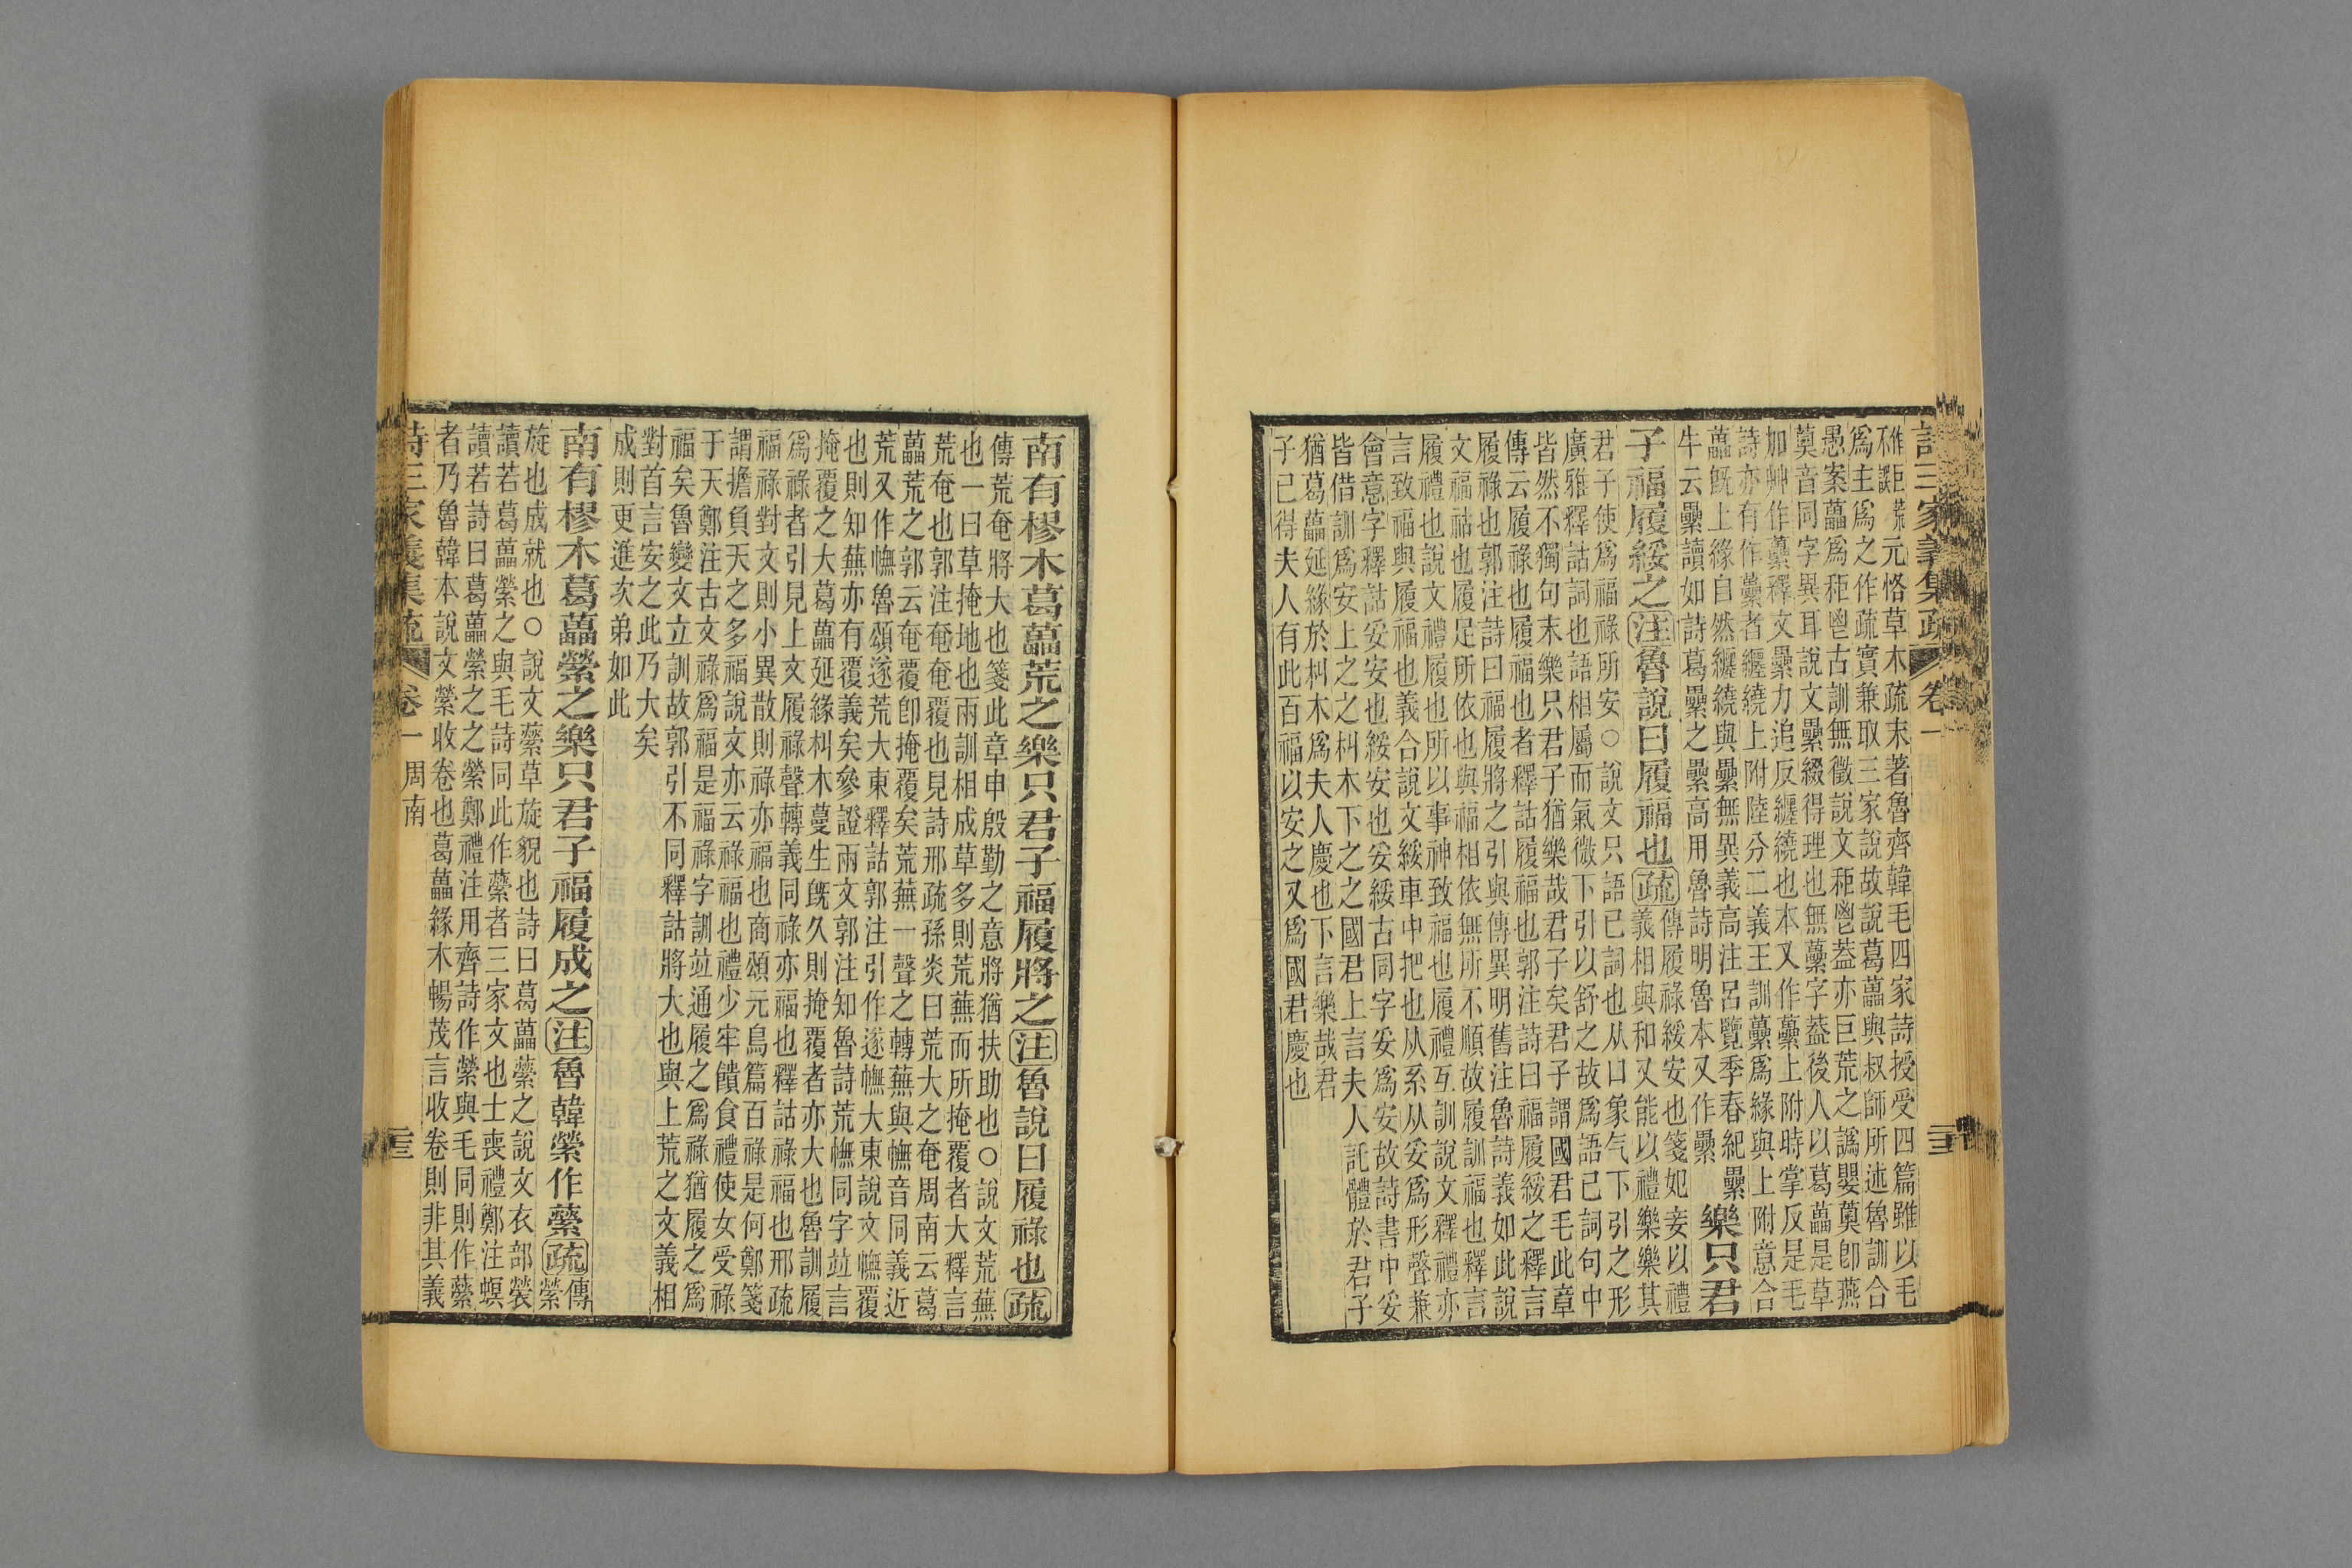 詩三家義集疏
卷一
三三
作巨荒元恪草木疏末著魯齊韓毛四家詩授受四篇雖以毛
不誤
爲主爲之作疏實兼取三家說故說葛藟與叔師所述魯訓合
愚案藟爲秬鬯古訓無徵說文秬鬯葢亦巨荒之譌嬰薁卽燕
薁音同字異耳說文纍綴得理也無虆字葢後人以葛藟是草
加艸作虆釋文纍力追反纏繞也本又作虆上附時掌反是毛
詩亦有作虆者纏繞上附陸分二義王訓虆爲緣與上附意合
藟旣上緣自然纏繞與纍無異義高注呂覽季春紀纍
牛云纍讀如詩葛纍之纍高用魯詩明魯本又作纍
樂只君
子福履綏之注魯說曰履福也疏
傳履祿綏安也箋妃妾以禮
義相與和又能以禮樂樂其
君子使爲福祿所安○說文只語已詞也从口象气下引之形
廣雅釋詁詞也語相屬而氣微下引以舒之故爲語已詞句中
皆然不獨句末樂只君子猶樂哉君子矣君子謂國君毛此章
傳云履祿也履福也者釋詁履福也郭注詩曰福履綏之釋言
履祿也郭注詩曰福履將之引與傳異明舊注魯詩義如此說
文福祜也履足所依也與福相依無所不順故履訓福也釋言
履禮也說文禮履也所以事神致福也履禮互訓說文釋禮亦
言致福與履福也義合說文綏車中把也从系从妥爲形聲兼
會意字釋詁妥安也綏安也妥綏古同字妥爲安故詩書中妥
皆借訓爲安上之之朻木下之之國君上言夫人託體於君子
猶葛藟延緣於朻木爲夫人慶也下言樂哉君
子已得夫人有此百福以安之又爲國君慶也
南有樛木葛藟荒之樂只君子福履將之注魯說曰履祿也疏
傳荒奄將大也箋此章申殷勤之意將猶扶助也○說文荒蕪
也一曰草掩地也兩訓相成草多則荒蕪而所掩覆者大釋言
荒奄也郭注奄奄覆也見詩邢疏孫炎曰荒大之奄周南云葛
藟荒之郭云奄覆卽掩覆矣荒蕪一聲之轉蕪與幠音同義近
荒又作幠魯頌遂荒大東釋詁郭注引作遂幠大東說文幠覆
也則知蕪亦有覆義矣參證兩文郭注知魯詩荒幠同字竝言
掩覆之大葛藟延緣朻木蔓生旣久則掩覆者亦大也魯訓履
爲祿者引見上文履祿聲轉義同祿亦福也釋詁祿福也邢疏
福祿對文則小異散則祿亦福也商頌元鳥篇百祿是何鄭箋
謂擔負天之多福說文亦云祿福也禮少牢饋食禮使女受祿
于天鄭注古文祿爲福是福祿字訓竝通履之爲祿猶履之爲
福矣魯變文立訓故郭引不同釋詁將大也與上荒之文義相
對首言安之此乃大矣
成則更進次弟如此
南有樛木葛藟縈之樂只君子福履成之注魯韓縈作藥疏
傳
縈
旋也成就也○說文藥草旋貌也詩曰葛藟藥之說文衣部褮
讀若葛藟縈之與毛詩同此作藥者三家文也士喪禮鄭注螟
讀若詩曰葛藟縈之之縈鄭禮注用齊詩作縈與毛同則作藥
者乃魯韓本說文縈收卷也葛藟緣木暢茂言收卷則非其義
詩三家義集疏
卷一
周南
三三